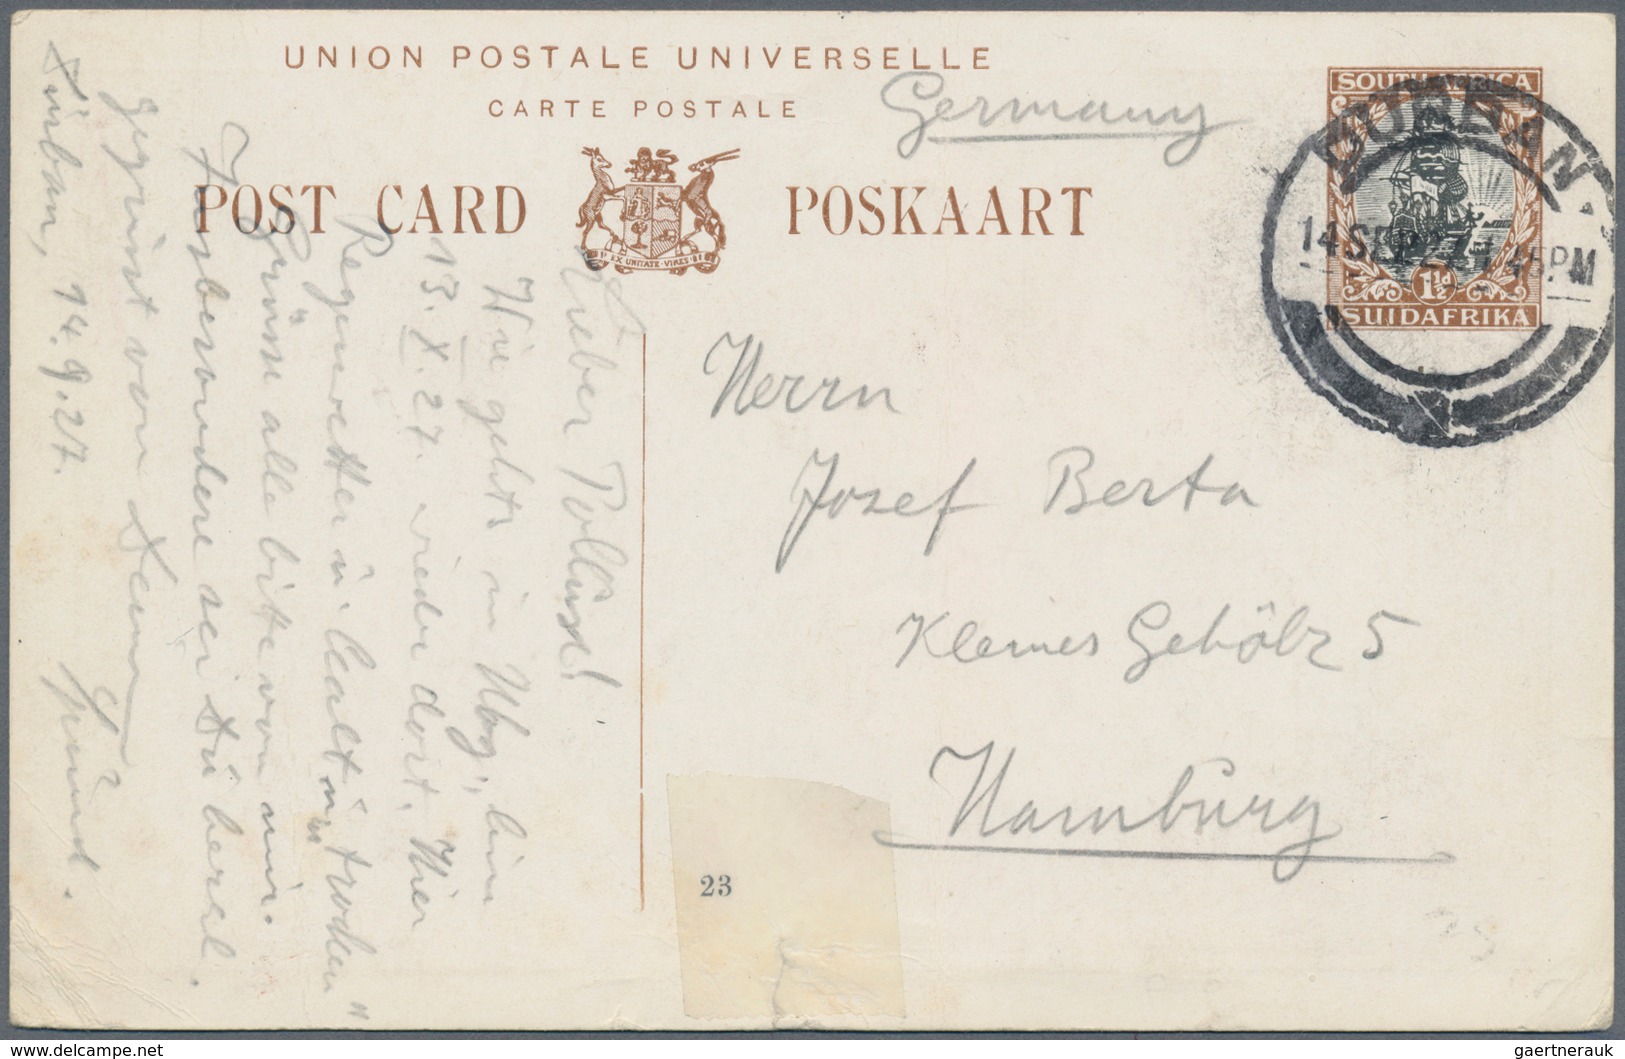 UNION POSTALE UNIVERSELLE
CARTE POSTALE
Germany
POST CARD
POSKAART
EX UNITATE VIRES
SOUTH AFRICA
1½d
SUIDAFRIKA
DURBAN
14 SEP 27 1.45PM
Herrn
Josef Berta
Kleines Gehölz 5
Hamburg
23
Lieber
Wie gehts in Hbg., bin
13.X.27. wieder dort. Hier
Regenwetter u.
Grüsse alle bitte von mir.
Insbesondere sei Du herzl.
gegrüsst von Deinem
Durban, 14.9.27.
delcampe.net
gaertnerauk